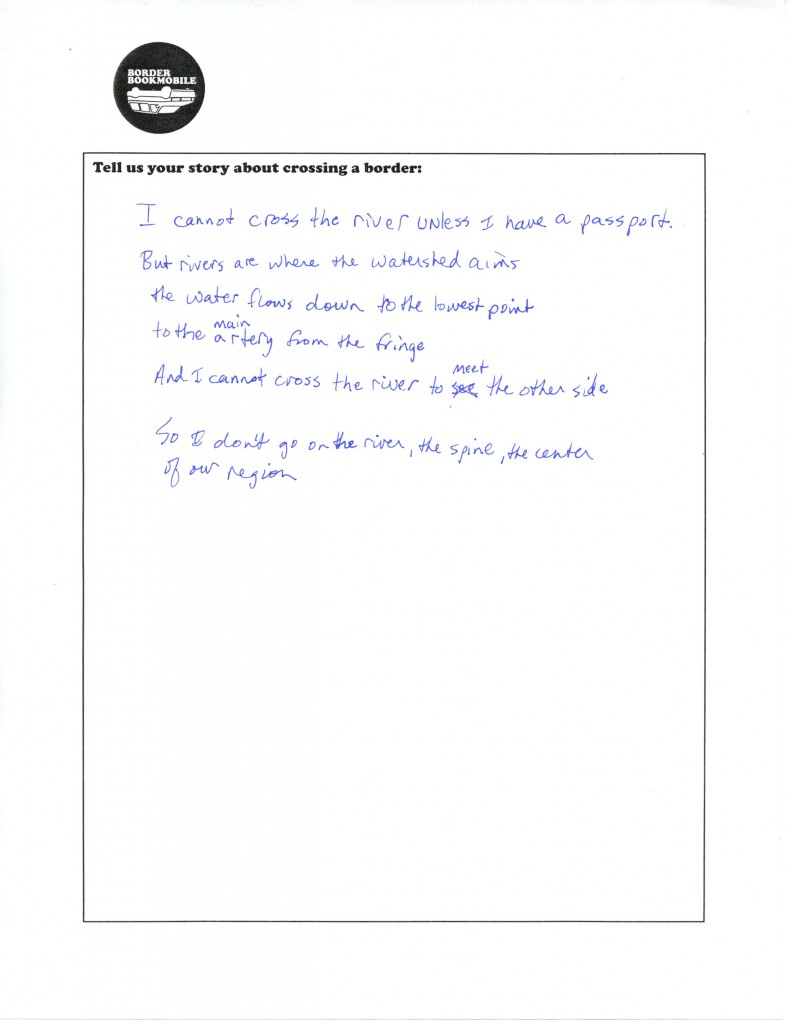 BORDER
BOOKMOBILE
Tell us your story about crossing a border:
I cannot cross the river unless I have a passport.
But rivers are where the watershed aims
the water flows down to the lowest point
to the main artery from the fringe
And I cannot cross the river to see meet the other side
So I don't go on the river, the spine, the center
of our region